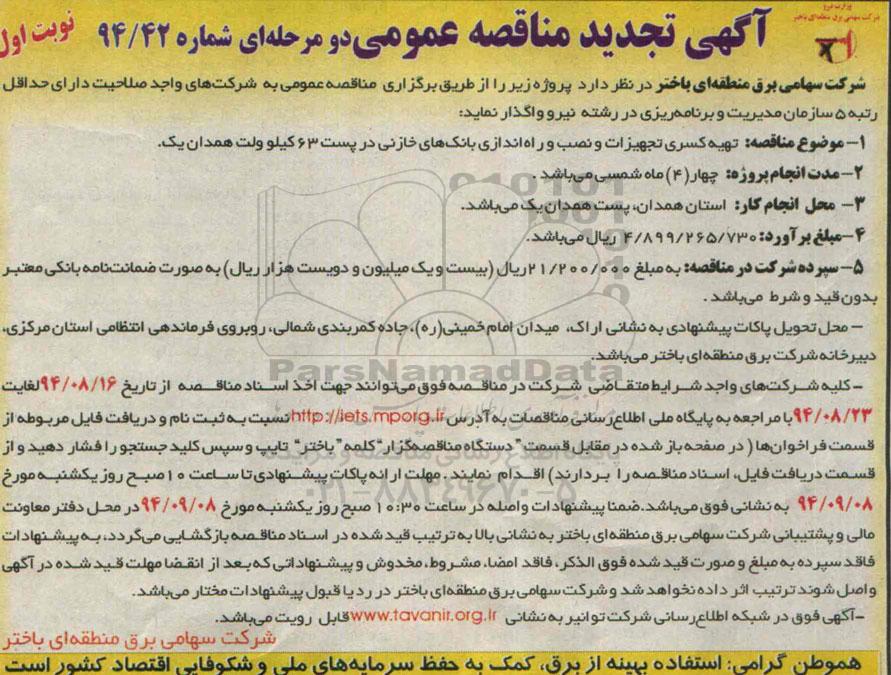 وزارت نیرو
شرکت سهامی برق منطقه‌ای باختر
آگهی تجدید مناقصه عمومی دو مرحله‌ای شماره ۹۴/۴۲
نوبت اول
شرکت سهامی برق منطقه‌ای باختر در نظر دارد پروژه زیر را از طریق برگزاری مناقصه عمومی به شرکت‌های واجد صلاحیت دارای حداقل
رتبه ۵ سازمان مدیریت و برنامه‌ریزی در رشته نیرو واگذار نماید:
۱- موضوع مناقصه: تهیه کسری تجهیزات و نصب و راه‌اندازی بانک‌های خازنی در پست ۶۳ کیلو ولت همدان یک.
۲- مدت انجام پروژه: چهار (۴) ماه شمسی می‌باشد.
۳- محل انجام کار: استان همدان، پست همدان یک می‌باشد.
۴- مبلغ برآورد: ۴/۸۹۹/۲۶۵/۷۳۰ ریال می‌باشد.
۵- سپرده شرکت در مناقصه: به مبلغ ۲۱/۲۰۰/۰۰۰ ریال (بیست و یک میلیون و دویست هزار ریال) به صورت ضمانت‌نامه بانکی معتبر
بدون قید و شرط می‌باشد.
- محل تحویل پاکات پیشنهادی به نشانی اراک، میدان امام خمینی(ره)، جاده کمربندی شمالی، روبروی فرماندهی انتظامی استان مرکزی،
دبیرخانه شرکت برق منطقه‌ای باختر می‌باشد.
ParsNamadData
- کلیه شرکت‌های واجد شرایط متقاضی شرکت در مناقصه فوق می‌توانند جهت اخذ اسناد مناقصه از تاریخ ۹۴/۰۸/۱۶ لغایت
۹۴/۰۸/۲۳ با مراجعه به پایگاه ملی اطلاع‌رسانی مناقصات به آدرس http://iets.mporg.ir نسبت به ثبت نام و دریافت فایل مربوطه از
قسمت فراخوان‌ها (در صفحه باز شده در مقابل قسمت "دستگاه مناقصه‌گزار" کلمه "باختر" تایپ و سپس کلید جستجو را فشار دهید و از
قسمت دریافت فایل، اسناد مناقصه را بردارند) اقدام نمایند. مهلت ارائه پاکات پیشنهادی تا ساعت ۱۰ صبح روز یکشنبه مورخ
۰۲۱-۸۸۳۴۹۶۷۰-۵
۹۴/۰۹/۰۸ به نشانی فوق می‌باشد. ضمنا پیشنهادات واصله در ساعت ۱۰:۳۰ صبح روز یکشنبه مورخ ۹۴/۰۹/۰۸ در محل دفتر معاونت
مالی و پشتیبانی شرکت سهامی برق منطقه‌ای باختر به نشانی بالا به ترتیب قید شده در اسناد مناقصه بازگشایی می‌گردد، به پیشنهادات
فاقد سپرده به مبلغ و صورت قید شده فوق الذکر، فاقد امضا، مشروط، مخدوش و پیشنهاداتی که بعد از انقضا مهلت قید شده در آگهی
واصل شوند ترتیب اثر داده نخواهد شد و شرکت سهامی برق منطقه‌ای باختر در رد یا قبول پیشنهادات مختار می‌باشد.
-آگهی فوق در شبکه اطلاع‌رسانی شرکت توانیر به نشانی www.tavanir.org.ir قابل رویت می‌باشد.
شرکت سهامی برق منطقه‌ای باختر
هموطن گرامی: استفاده بهینه از برق، کمک به حفظ سرمایه‌های ملی و شکوفایی اقتصاد کشور است